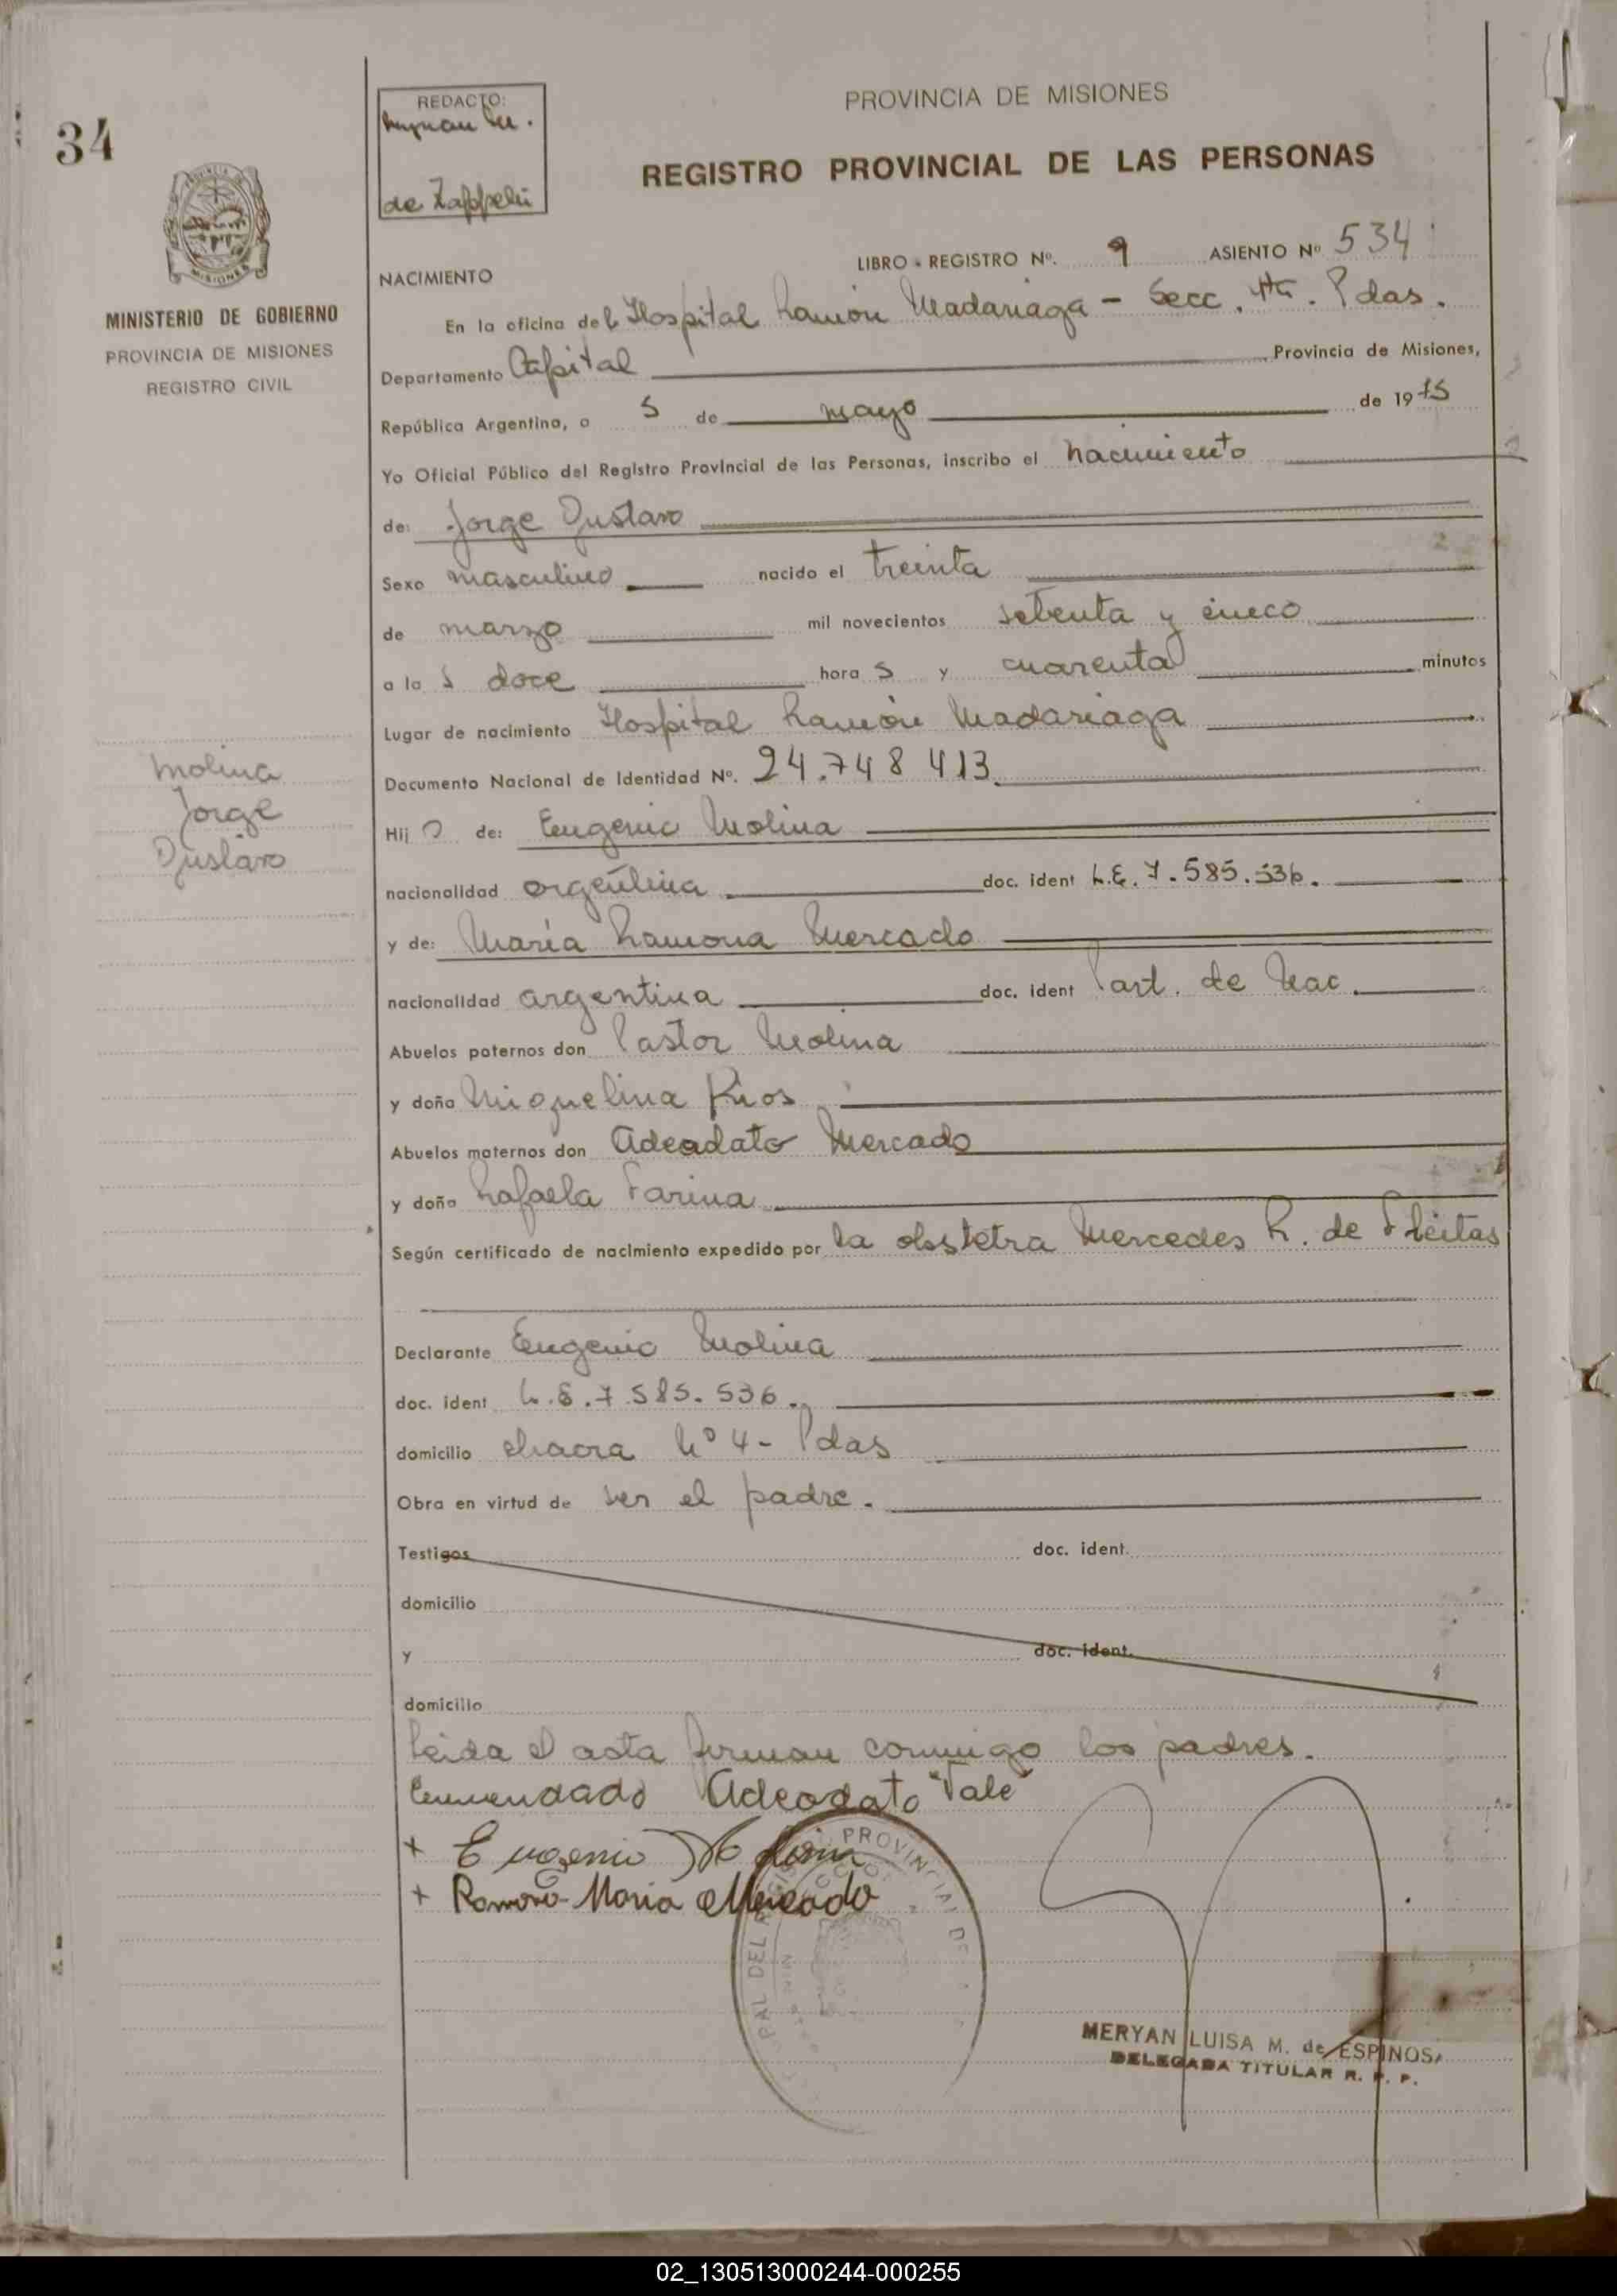 34
REDACTO:
de Zappelli
PROVINCIA DE MISIONES
REGISTRO PROVINCIAL DE LAS PERSONAS
MISIONES
MINISTERIO DE GOBIERNO
PROVINCIA DE MISIONES
REGISTRO CIVIL
LIBRO - REGISTRO Nº. 9 ASIENTO Nº 534
NACIMIENTO
En la oficina del Hospital Ramón Madariaga - Secc. 4ta. Pdas.
Departamento Capital Provincia de Misiones,
República Argentina, a 5 de mayo de 1975
Yo Oficial Público del Registro Provincial de las Personas, inscribo el nacimiento
de: Jorge Gustavo
Sexo masculino nacido el treinta
de marzo mil novecientos setenta y cinco
a la s doce hora s y cuarenta minutos
Lugar de nacimiento Hospital Ramón Madariaga
Documento Nacional de Identidad Nº. 24.748 413
Molina
Jorge
Gustavo
Hij o de: Eugenio Molina
nacionalidad argentina doc. ident L.E. 7.585.536.
y de: María Ramona Mercado
nacionalidad argentina doc. ident Part. de Nac.
Abuelos paternos don Pastor Molina
y doña Miquelina Rios
Abuelos maternos don Adeodato Mercado
y doña Rafaela Farina
Según certificado de nacimiento expedido por la obstetra Mercedes R. de Fleitas
Declarante Eugenio Molina
doc. ident L.E. 7.585.536.
domicilio chacra Nº 4 - Pdas
Obra en virtud de ser el padre.
Testigos doc. ident.
domicilio
y doc. ident.
domicilio
Leida el acta firman conmigo los padres.
Enmendado Adeodato "Vale"
+ Eugenio Molina
+ Ramona María Mercado
PROVINCIAL DE
MERYAN LUISA M. de ESPINOSA
DELEGADA TITULAR R. P. P.
02_130513000244-000255